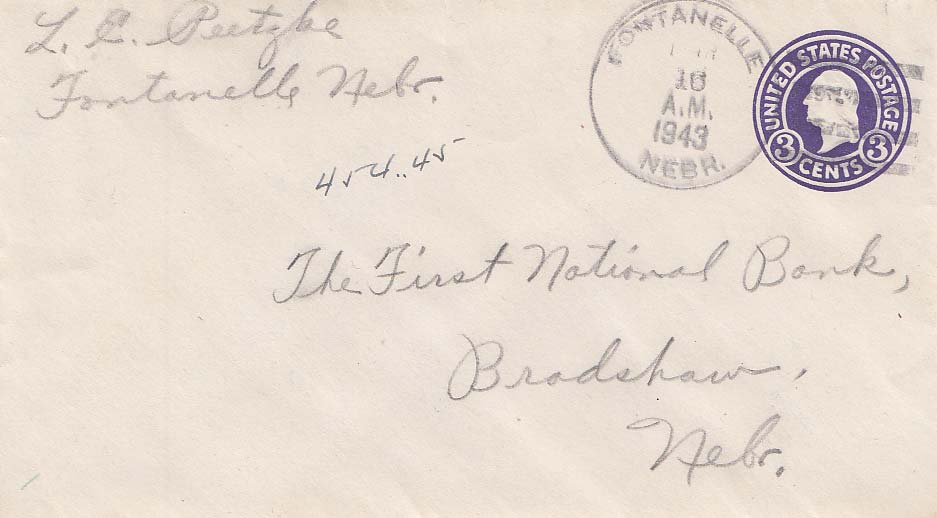 L. E.
Fontanelle Nebr.
FONTANELLE
16
A.M.
1943
NEBR.
UNITED STATES POSTAGE
3 CENTS 3
454..45
The First National Bank,
Bradshaw,
Nebr.